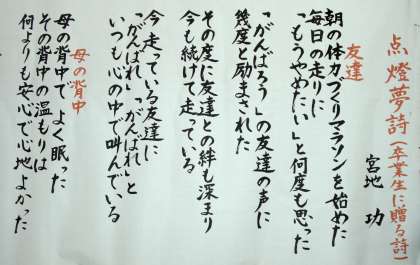 点燈夢詩(卒業生に贈る詩)
宮地 功
友達
朝の体力づくりマラソンを始めた
毎日の走りに
「もうやめたい」と何度も思った
「がんばろう」の友達の声に
幾度と励まされた
その度に友達との絆も深まり
今も続けて走っている
今走っている友達に
「がんばれ」「がんばれ」と
いつも心の中で叫んでいる
母の背中
母の背中で よく眠った
その背中の温もりは
何よりも安心で心地よかった